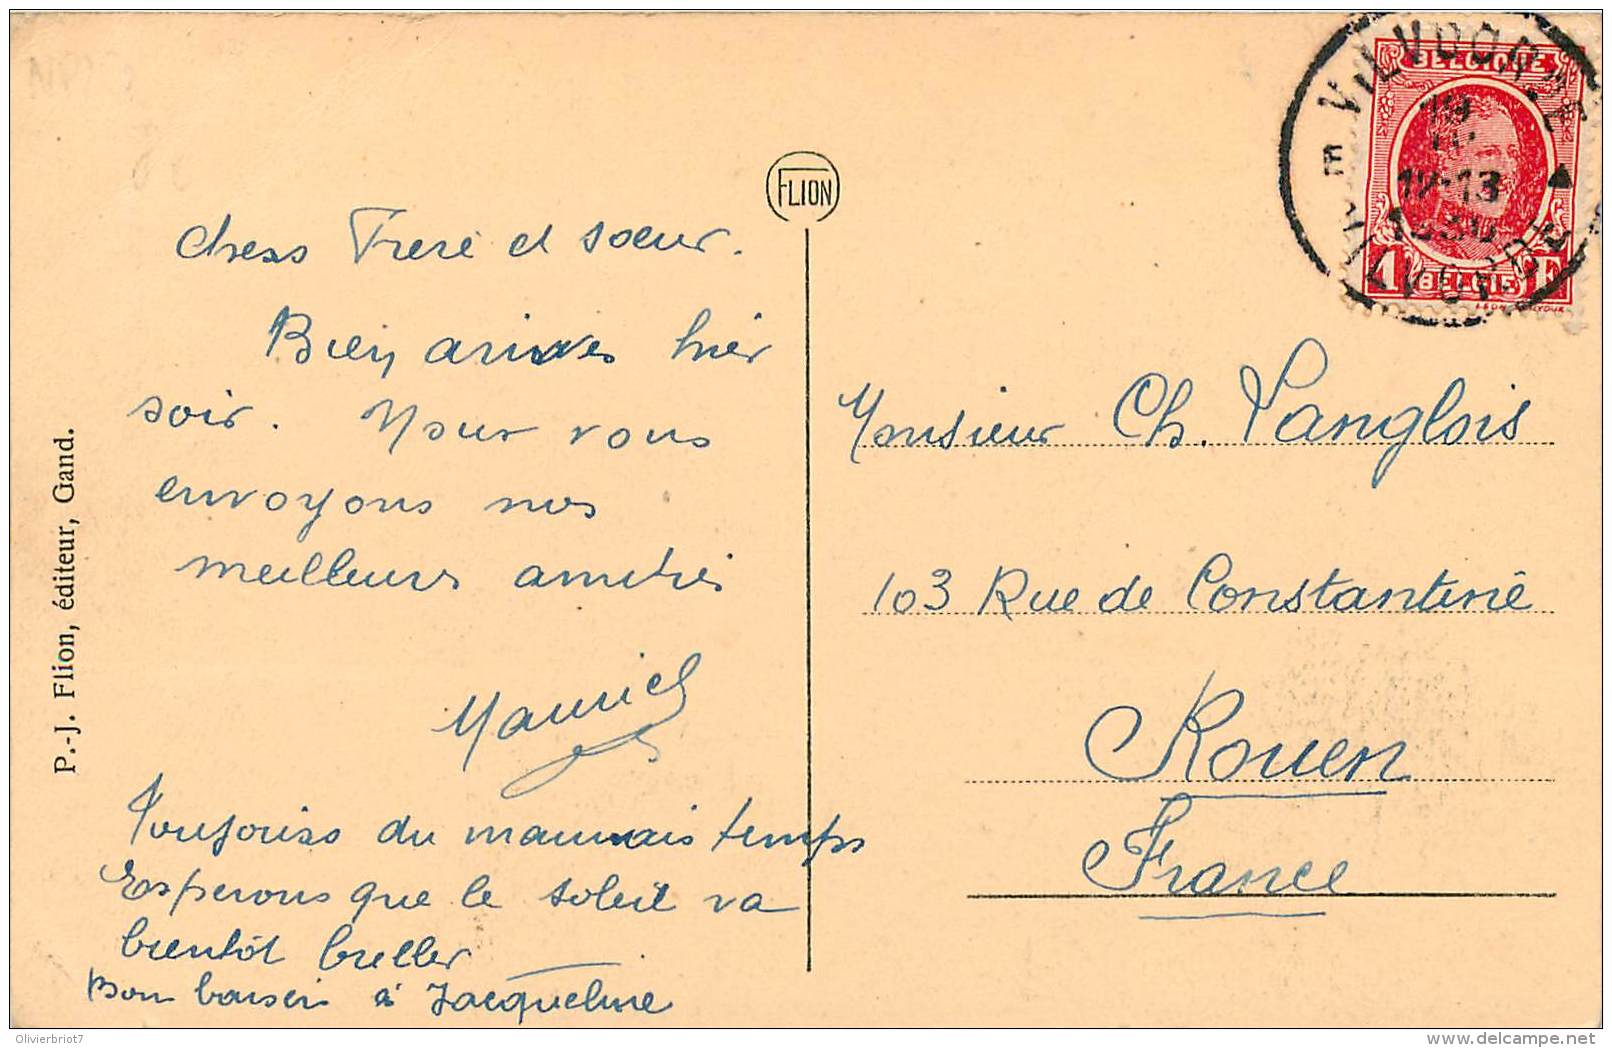 chers Frere et soeur.
Bien arrivés hier
soir. Nous vous
envoyons nos
meilleurs amitiés
Maurice
Toujours du mauvais temps
Esperons que le soleil va
bientôt briller
Bon baiser à Jacqueline
P.-J. Flion, éditeur, Gand.
FLION
BELGIQUE
1 F
BELGIE
VILVOORDE
VILVORDE
12-13
Monsieur Ch. Langlois
103 Rue de Constantine
Rouen
France
Olivierbriot7
www.delcampe.net